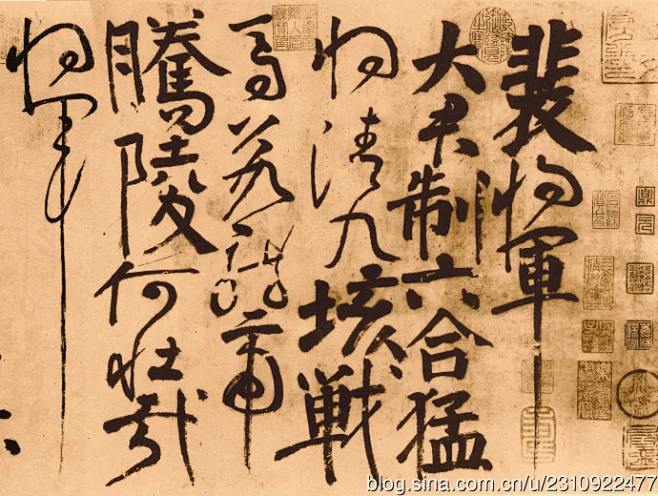 裴将軍
大君制六合猛
将清九垓戦
馬若龍虎
騰陵何壮哉
将軍
blog.sina.com.cn/u/2310922477